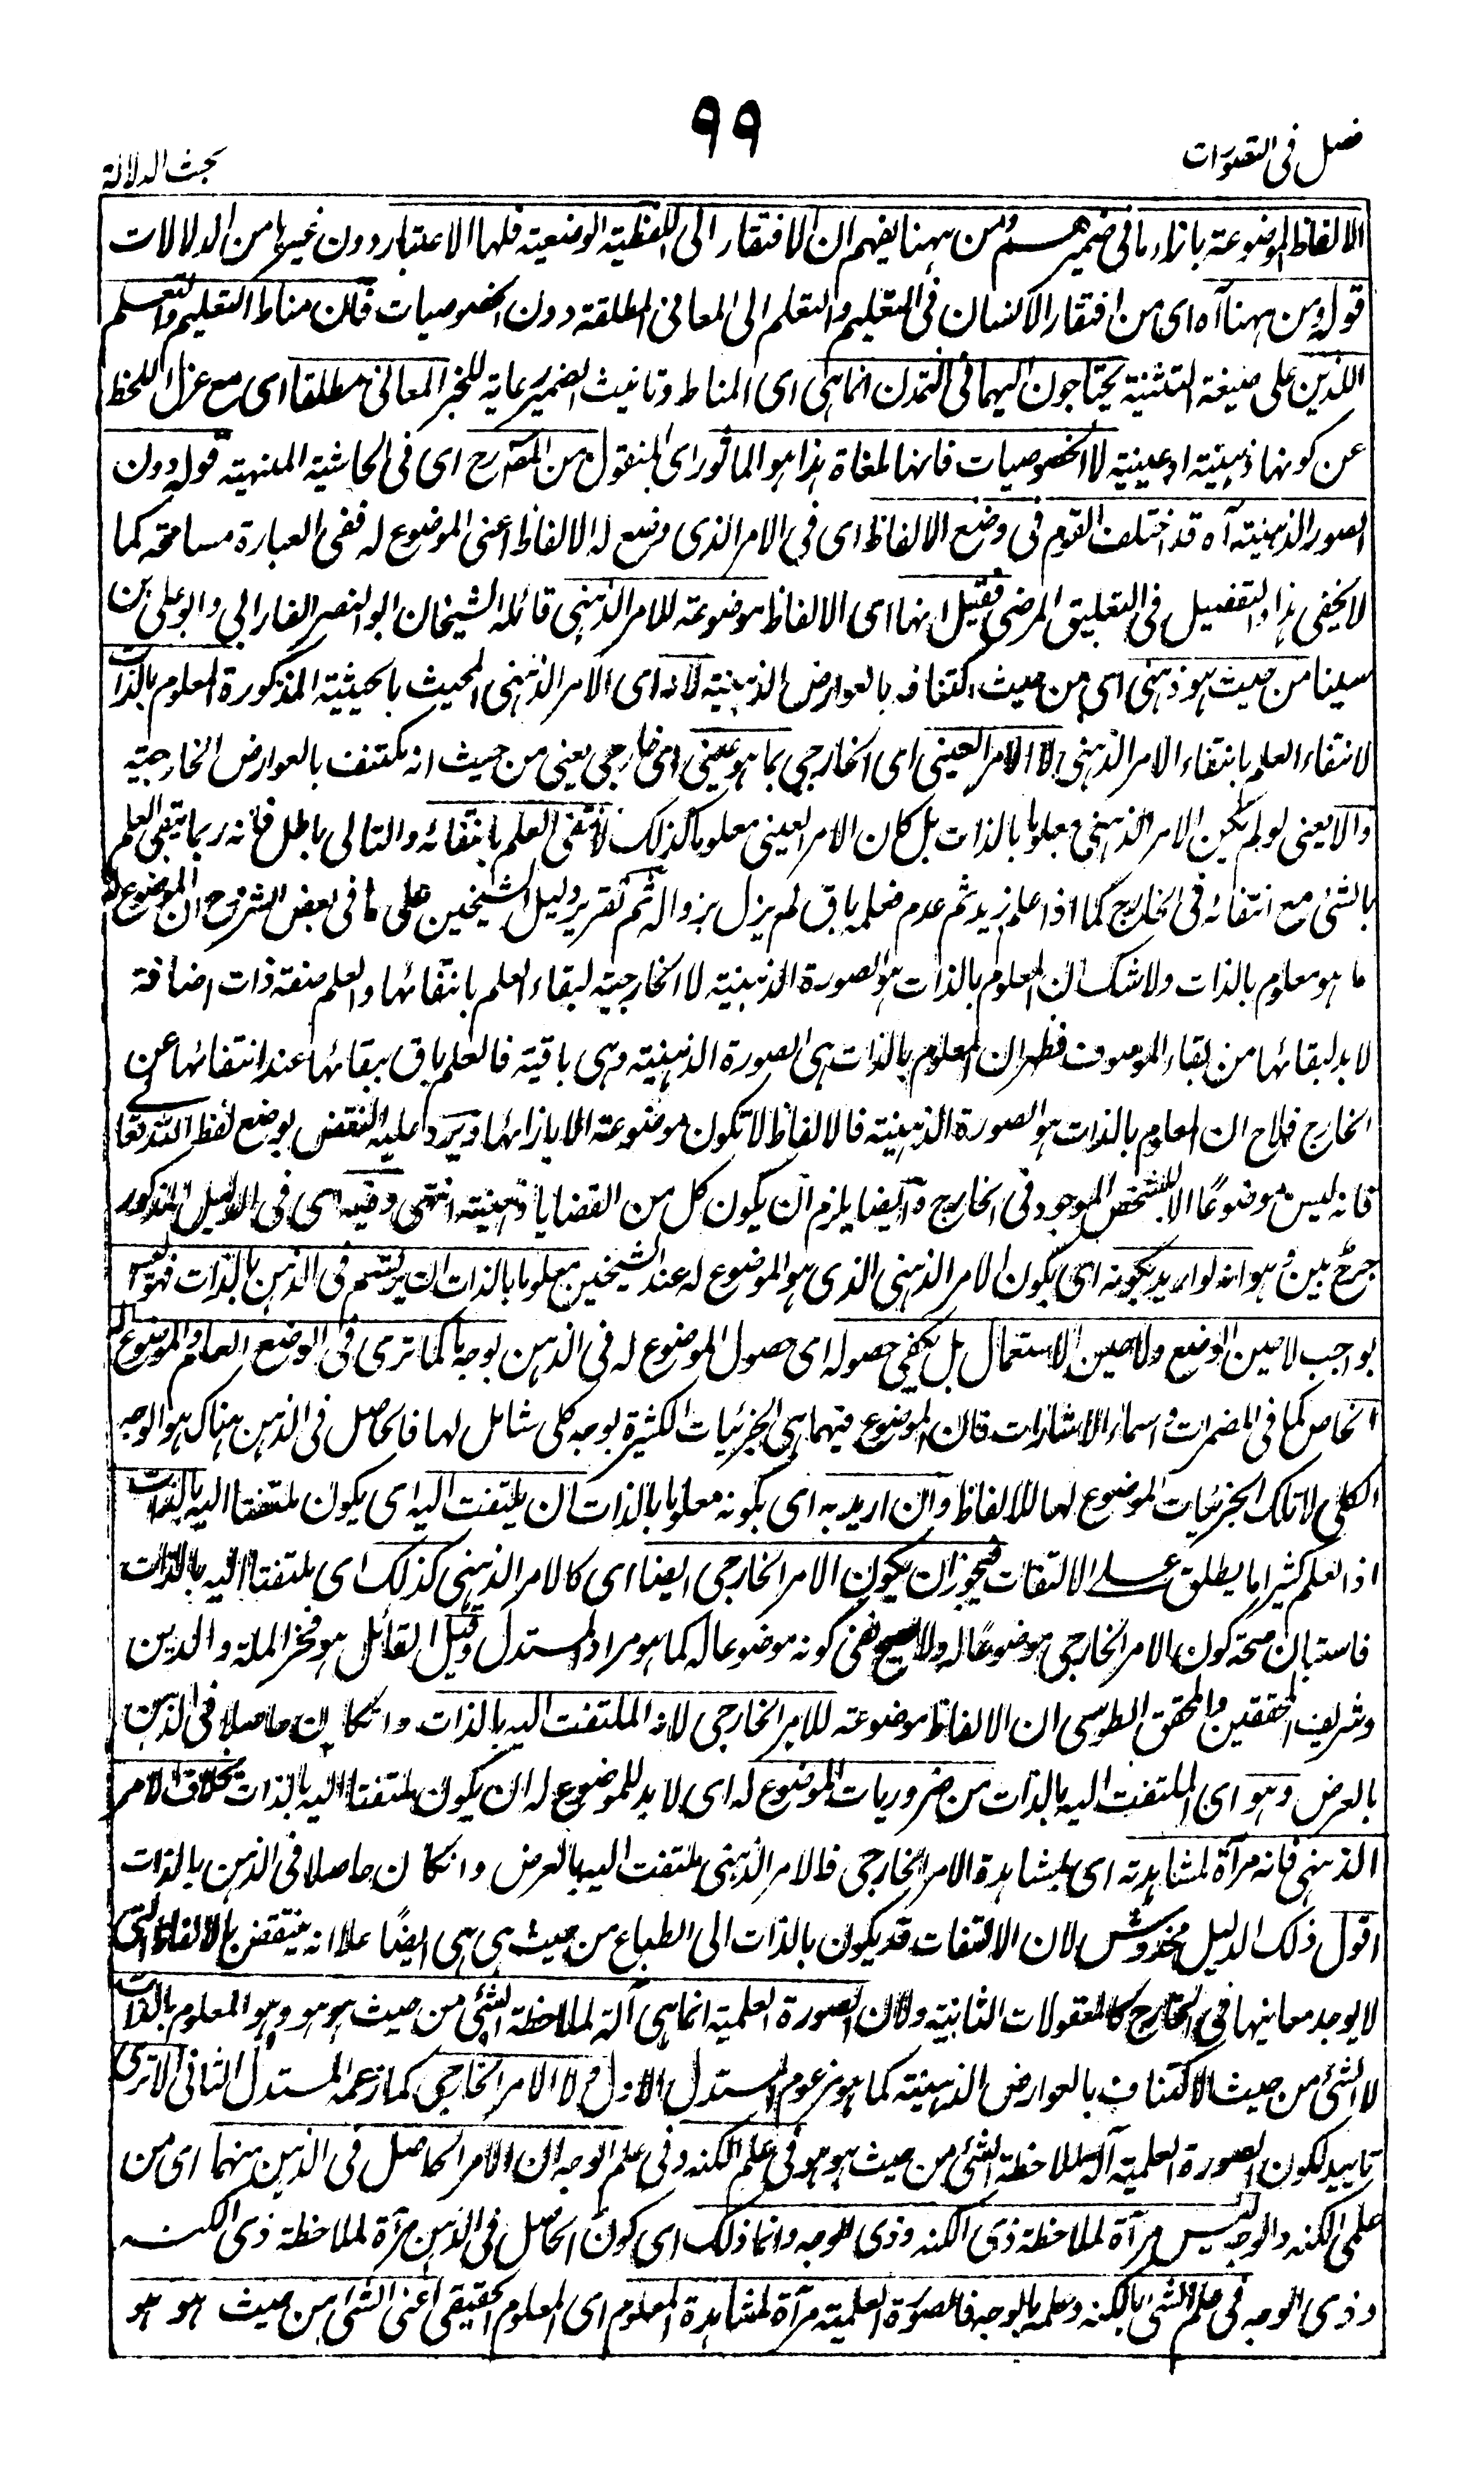 ٩٩
فصل فى التصورات
بحث الدلالة
الالفاظ الموضوعة بازاء ما فى ضميرهم ومن ههنا يفهم ان الافتقار الى اللفظية الوضعية فلها الاعتبار دون غيرها من الدلالات
قوله ومن ههنا آه اى من افتقار الانسان فى التعليم والتعلم الى المعانى المطلقة دون الخصوصيات فان مناط التعليم والتعلم
اللذين على صيغة التثنية يحتاجون اليهما فى التمدن انما هى اى المناط وتانيث الضمير رعاية للخبر المعانى مطلقا اى مع عزل اللحظ
عن كونها ذهنية او عينية لا الخصوصيات فانها ملغاة هذا هو الماثور اى المنقول من المصرح اى فى الحاشية المنهية قوله دون
الصور الذهنية آه قد اختلف القوم فى وضع الالفاظ اى فى الامر الذى وضع له الالفاظ اعنى الموضوع له ففى العبارة مسامحة كما
لا يخفى هذا والتفصيل فى التعليق المرضى فقيل انها اى الالفاظ موضوعة للامر الذهنى قائله الشيخان ابو النصر الفارابى وابو على بن
سينا من حيث هو ذهنى اى من حيث اكتنافه بالعوارض الذهنية لانه اى الامر الذهنى المحيث بالحيثية المذكورة المعلوم بالذات
لانتفاء العلم بانتفاء الامر الذهنى لا الامر العينى اى الخارجى بما هو عينى اى خارجى يعنى من حيث انه مكتنف بالعوارض الخارجية
والا يعنى لو لم يكن الامر الذهنى معلوما بالذات بل كان الامر العينى معلوما كذلك لانتفى العلم بانتفائه والتالى باطل فانه ربما يبقى العلم
بالشئ مع انتفائه فى الخارج كما اذا علم زيد ثم عدم فعلمه باق لم يزل بزواله ثم تقرير دليل الشيخين على ما فى بعض الشروح ان الموضوع له
ما هو معلوم بالذات ولا شك ان المعلوم بالذات هو الصورة الذهنية لا الخارجية لبقاء العلم بانتفائها والعلم صفة ذات اضافة
لا بد لبقائها من بقاء الموصوف فظهر ان المعلوم بالذات هى الصورة الذهنية وهى باقية فالعلم باق ببقائها عند انتفائها عن
الخارج فلاح ان المعلوم بالذات هو الصورة الذهنية فالالفاظ لا تكون موضوعة الا بازائها ويرد عليه النقض بوضع لفظ الله تعالى
فانه ليس موضوعًا الا للشخص الموجود فى الخارج وايضا يلزم ان يكون كل من القضايا ذهنية انتهى وفيه اى فى الدليل المذكور
جرح بين وهو انه لو اريد بكونه اى بكون الامر الذهنى الذى هو الموضوع له عند الشيخين معلوما بالذات ان يرتسم فى الذهن بالذات فهو ليس
بواجب لا حين الوضع ولا حين الاستعمال بل يكفى حصوله اى حصول الموضوع له فى الذهن بوجه ما كما ترى فى الوضع العام والموضوع له
الخاص كما فى المضمرات واسماء الاشارات فان الموضوع فيهما هى الجزئيات الكثيرة بوجه كلى شامل لها فالحاصل فى الذهن هناك هو الوجه
الكلى لا تلك الجزئيات الموضوع لها للالفاظ وان اريد به اى بكونه معلوما بالذات ان يلتفت اليه اى يكون ملتفتا اليه بالذات
اذ العلم كثيرا ما يطلق على الالتفات فيجوز ان يكون الامر الخارجى ايضا اى كالامر الذهنى كذلك اى ملتفتا اليه بالذات
فاستبان صحة كون الامر الخارجى موضوعًا له ولا يصح نفى كونه موضوعا له كما هو مراد المستدل وقيل القائل هو فخر الملة والدين
وشريف المحققين والمحقق الطوسى ان الالفاظ موضوعة للامر الخارجى لانه الملتفت اليه بالذات وان كان حاصلا فى الذهن
بالعرض وهو اى الملتفت اليه بالذات من ضروريات الموضوع له اى لا بد للموضوع له ان يكون ملتفتا اليه بالذات بخلاف الامر
الذهنى فانه مرآة لمشاهدته اى لمشاهدة الامر الخارجى فالامر الذهنى ملتفت اليه بالعرض وان كان حاصلا فى الذهن بالذات
اقول ذلك الدليل مخدوش لان الالتفات قد يكون بالذات الى الطباع من حيث هى هى ايضًا علا انه ينتقض بالالفاظ التى
لا يوجد معانيها فى الخارج كالمعقولات الثانية ولان الصورة العلمية انما هى آلة لملاحظة الشئ من حيث هو هو وهو المعلوم بالذات
لا الشئ من حيث الاكتناف بالعوارض الذهنية كما هو مزعوم المستدل الاول ولا الامر الخارجى كما زعمه المستدل الثانى الا ترى
تاييد لكون الصورة العلمية آلة لملاحظة الشئ من حيث هو هو فى علم الكنه وفى علم الوجه ان الامر الحاصل فى الذهن منهما اى من
علمى الكنه والوجه ليس مرآة لملاحظة ذى الكنه وذى الوجه وانما ذلك اى كون الحاصل فى الذهن مرآة لملاحظة ذى الكنه
وذى الوجه فى علم الشئ بالكنه وعلمه بالوجه فالصورة العلمية مرآة لمشاهدة المعلوم اى المعلوم الحقيقى اعنى الشئ من حيث هو هو